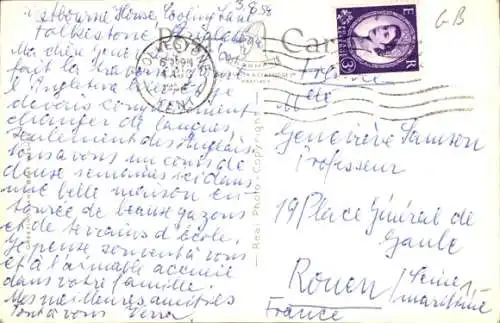 Westbourne House Coolinge Lane
Folkestone
3.9.58
Post Card
GB
Ma chère Geneviève
fait la
l'Angleterre
devons complètement
changer de langues,
seulement des Anglais.
Nous avons un cours de
deux semaines ici dans
une belle maison en-
tourée de beaux gazons
et de terrains d'école.
Je pense souvent à vous
et à l'aimable accueil
dans votre famille.
Mes meilleures amitiés
sont à vous
FOLKESTONE
KENT
E R
3
Real Photo-Copyright
Mlle
Geneviève Samson
Professeur
19 Place Général de
Gaule
Rouen (Seine
maritime)
France